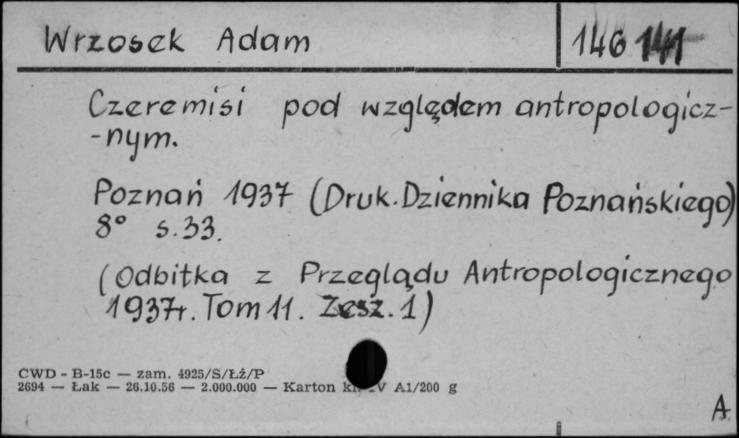 Wrzosek Adam 146 141
Czeremisi pod względem antropologicz-
-nym.
Poznań 1937 (Druk. Dziennika Poznańskiego)
8° s.33.
(Odbitka z Przeglądu Antropologicznego
1937r. Tom 11. Zesz. 1)
CWD - B-15c — zam. 4925/S/Łż/P
2694 — Łak — 26.10.56 — 2.000.000 — Karton A1/200 g
A